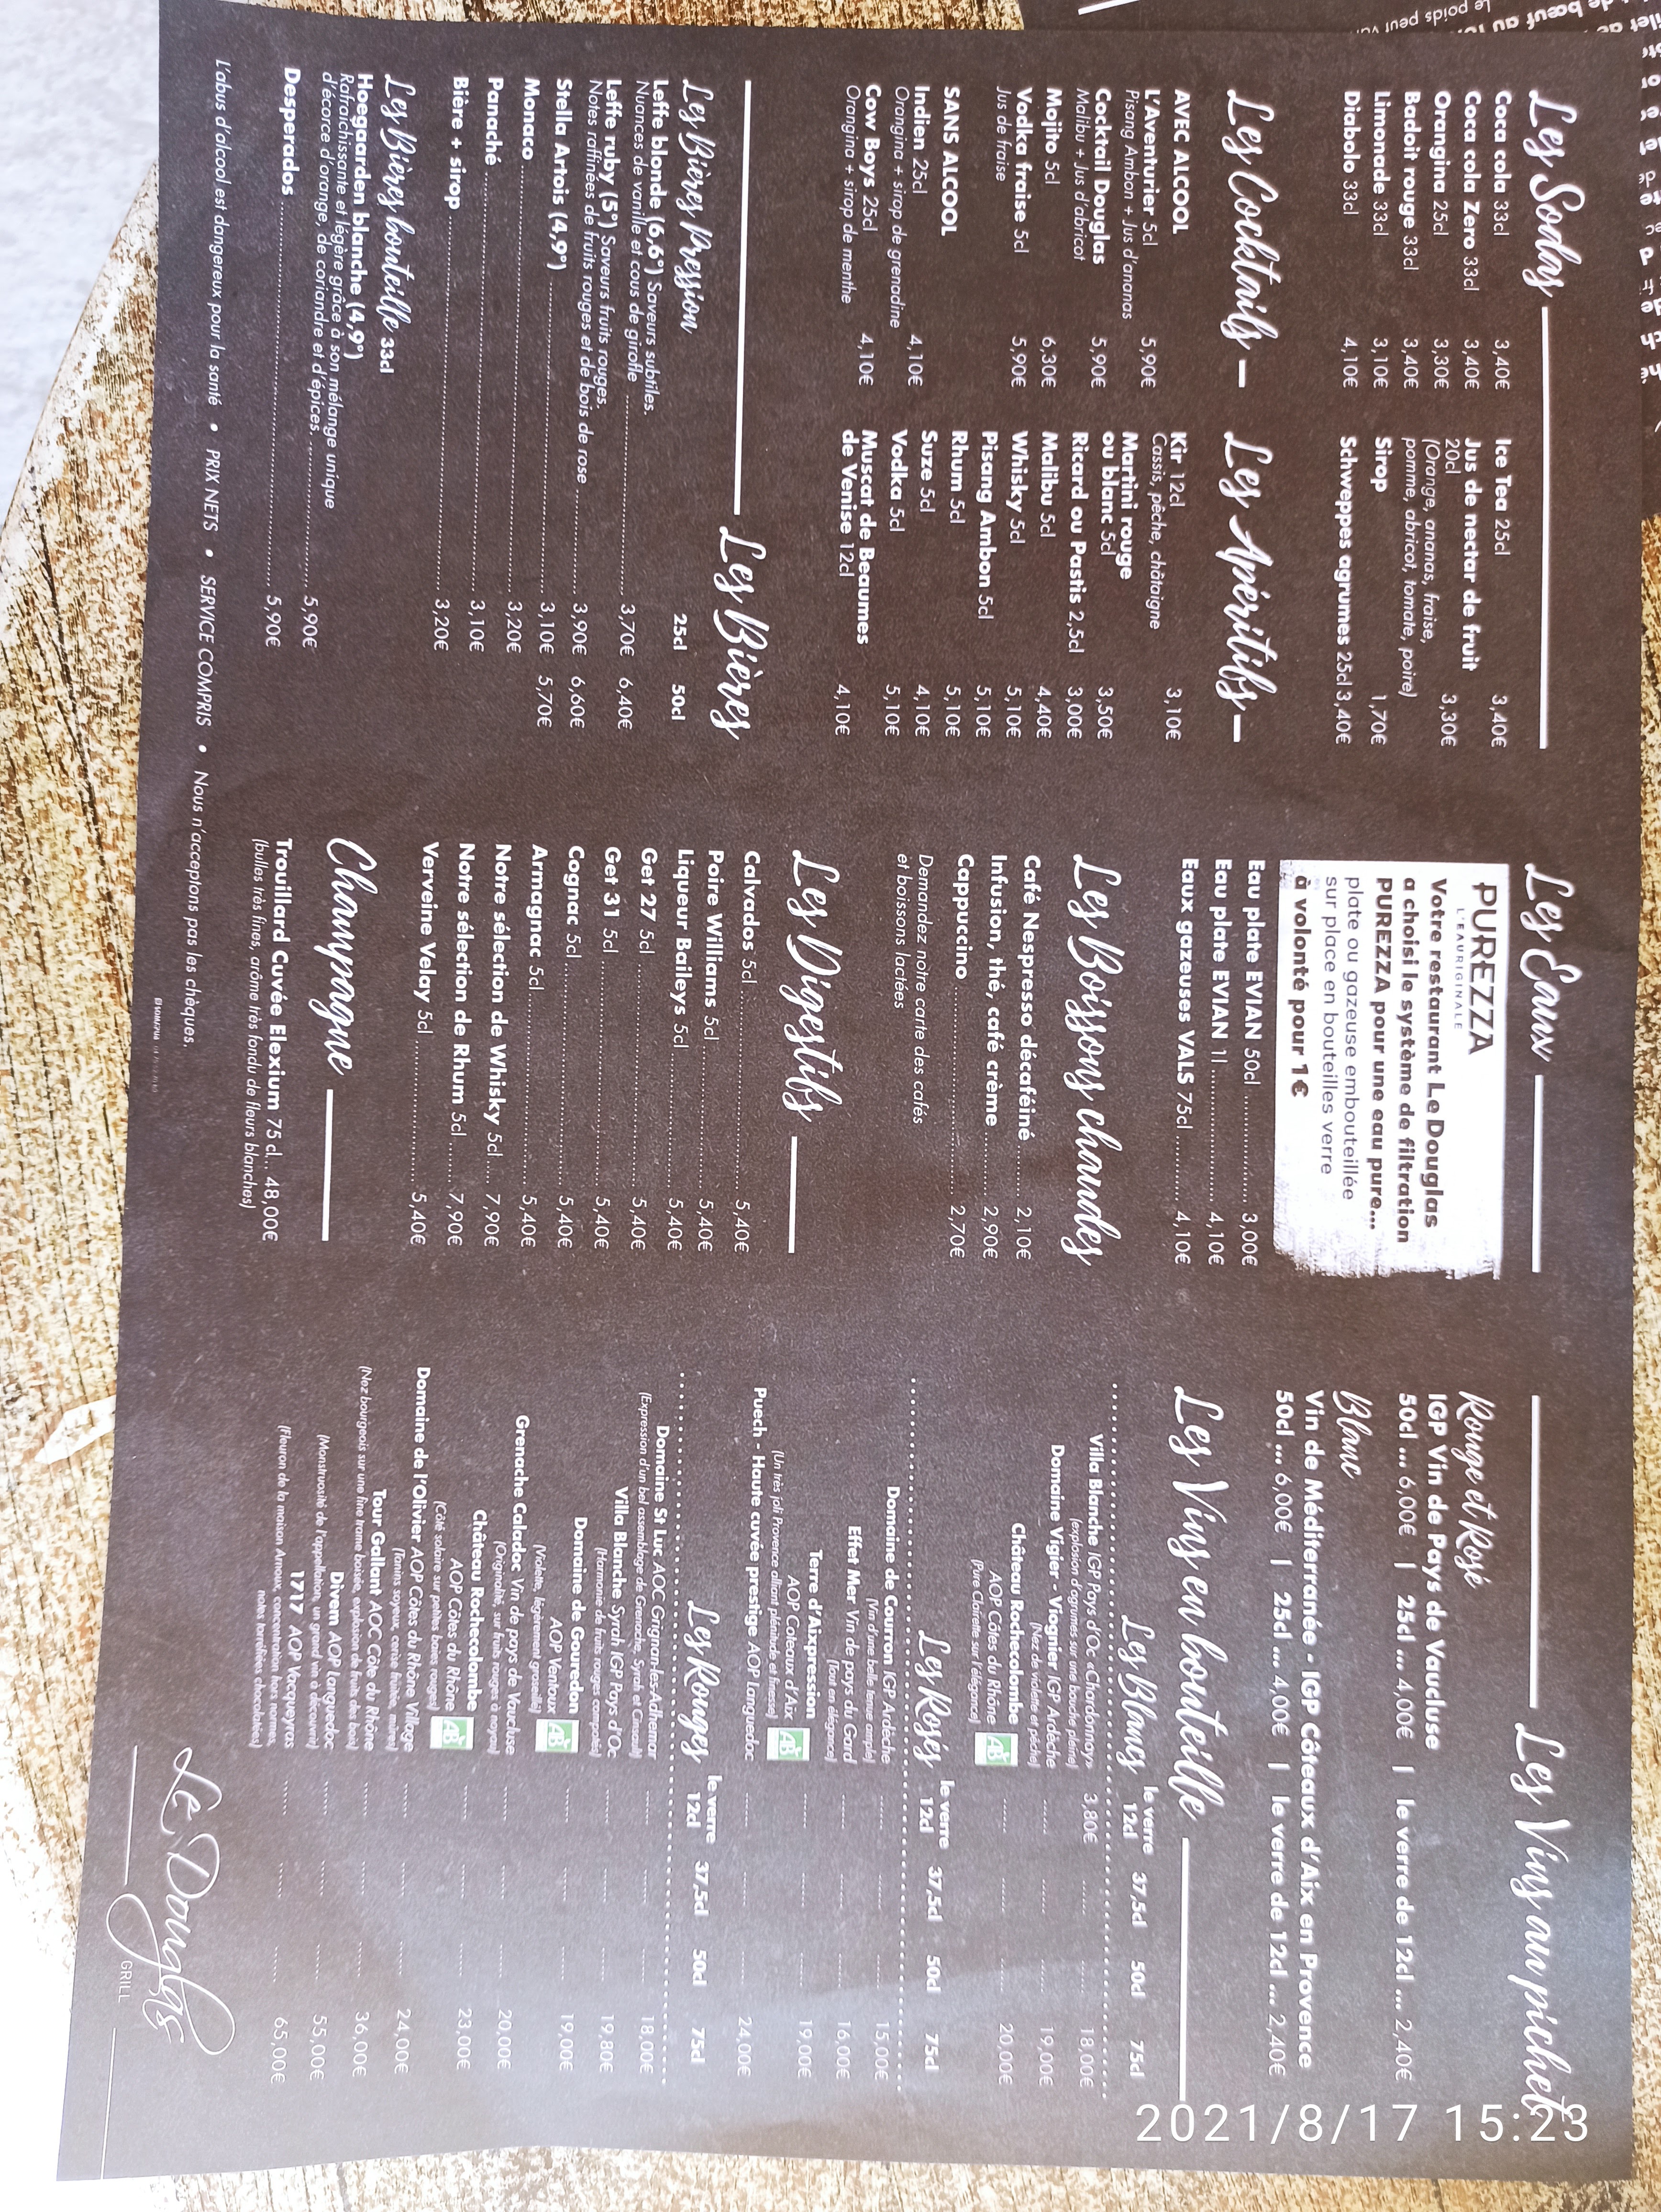 Les Sodas
Coca cola 33cl 3,40€
Coca cola Zero 33cl 3,40€
Orangina 25cl 3,30€
Badoit rouge 33cl 3,40€
Limonade 33cl 3,10€
Diabolo 33cl 4,10€
Ice Tea 25cl 3,40€
Jus de nectar de fruit
20cl 3,30€
(Orange, ananas, fraise,
pomme, abricot, tomate, poire)
Sirop 1,70€
Schweppes agrumes 25cl 3,40€
Les Cocktails
AVEC ALCOOL
L'Aventurier 5cl 5,90€
Pisang Ambon + Jus d'ananas
Cocktail Douglas 5,90€
Malibu + Jus d'abricot
Mojito 5cl 6,30€
Vodka fraise 5cl 5,90€
Jus de fraise
SANS ALCOOL
Indien 25cl 4,10€
Orangina + sirop de grenadine
Cow Boys 25cl 4,10€
Orangina + sirop de menthe
Les Apéritifs
Kir 12cl 3,10€
Cassis, pêche, châtaigne
Martini rouge
ou blanc 5cl 3,50€
Ricard ou Pastis 2,5cl 3,00€
Malibu 5cl 4,40€
Whisky 5cl 5,10€
Pisang Ambon 5cl 5,10€
Rhum 5cl 5,10€
Suze 5cl 4,10€
Vodka 5cl 5,10€
Muscat de Beaumes
de Venise 12cl 4,10€
Les Bières
Les Bières Pression 25cl 50cl
Leffe blonde (6,6°) Saveurs subtiles.
Nuances de vanille et cous de girofle 3,70€ 6,40€
Leffe ruby (5°) Saveurs fruits rouges.
Notes raffinées de fruits rouges et de bois de rose 3,90€ 6,60€
Stella Artois (4,9°) 3,10€ 5,70€
Monaco 3,20€
Panaché 3,10€
Bière + sirop 3,20€
Les Bières bouteille 33cl
Hoegaarden blanche (4,9°)
Rafraichissante et légère grâce à son mélange unique
d'écorce d'orange, de coriandre et d'épices. 5,90€
Desperados 5,90€
Les Eaux
PUREZZA
L'EAURIGINALE
Votre restaurant Le Douglas
a choisi le système de filtration
PUREZZA pour une eau pure...
plate ou gazeuse embouteillée
sur place en bouteilles verre
à volonté pour 1€
Eau plate EVIAN 50cl 3,00€
Eau plate EVIAN 1l 4,10€
Eaux gazeuses VALS 75cl 4,10€
Les Boissons chaudes
Café Nespresso décaféiné 2,10€
Infusion, thé, café crème 2,90€
Cappuccino 2,70€
Demandez notre carte des cafés
et boissons lactées
Les Digestifs
Calvados 5cl 5,40€
Poire Williams 5cl 5,40€
Liqueur Baileys 5cl 5,40€
Get 27 5cl 5,40€
Get 31 5cl 5,40€
Cognac 5cl 5,40€
Armagnac 5cl 5,40€
Notre sélection de Whisky 5cl 7,90€
Notre sélection de Rhum 5cl 7,90€
Verveine Velay 5cl 5,40€
Champagne
Trouillard Cuvée Elexium 75 cl.. 48,00€
(bulles très fines, arôme très fondu de fleurs blanches)
Les Vins au pichet
Rouge et Rosé
IGP Vin de Pays de Vaucluse
50cl ... 6,00€ | 25cl ... 4,00€ | le verre de 12cl ... 2,40€
Blanc
Vin de Méditerranée - IGP Côteaux d'Aix en Provence
50cl ... 6,00€ | 25cl ... 4,00€ | le verre de 12cl ... 2,40€
Les Vins en bouteille
Les Blancs le verre 12cl 37,5cl 50cl 75cl
Villa Blanche IGP Pays d'Oc «Chardonnay» 3,80€ 18,00€
(explosion d'agrumes sur une bouche pleine)
Domaine Vigier - Viognier IGP Ardèche 19,00€
(Nez de violette et pêche)
Château Rochecolombe
AOP Côtes du Rhône AB 20,00€
(Pure Clairette sur l'élégance)
Les Rosés le verre 12cl 37,5cl 50cl 75cl
Domaine de Courron IGP Ardèche 15,00€
(Vin d'une belle tenue ample)
Effet Mer Vin de pays du Gard 16,00€
(Tout en élégance)
Terre d'Aixpression
AOP Coteaux d'Aix AB 19,00€
(Un très joli Provence alliant plénitude et finesse)
Puech - Haute cuvée prestige AOP Languedoc 24,00€
Les Rouges le verre 12cl 37,5cl 50cl 75cl
Domaine St Luc AOC Grignan-les-Adhemar 18,00€
(Expression d'un bel assemblage de Grenache, Syrah et Cinsault)
Villa Blanche Syrah IGP Pays d'Oc 19,80€
(Harmonie de fruits rouges compotés)
Domaine de Gouredon
AOP Ventoux AB 19,00€
(Violette, légèrement groseille)
Grenache Caladoc Vin de pays de Vaucluse 20,00€
(Originalité, sur fruits rouges à noyau)
Château Rochecolombe
AOP Côtes du Rhône AB 23,00€
(Côté solaire sur petites baies rouges)
Domaine de l'Olivier AOP Côtes du Rhône Village 24,00€
(Tanins soyeux, cerise fraîche, mûres)
Tour Gallant AOC Côte du Rhône 36,00€
(Nez bourgeois sur une fine trame boisée, explosion de fruits des bois)
Divem AOP Languedoc 55,00€
(Monstruosité de l'appellation, un grand vin à découvrir)
1717 AOP Vacqueyras 65,00€
(Fleuron de la maison Arnoux, concentration hors normes,
notes torréfiées chocolatées)
L'abus d'alcool est dangereux pour la santé • PRIX NETS • SERVICE COMPRIS • Nous n'acceptons pas les chèques.
Le Douglas
GRILL
Le poids peut
2021/8/17 15:23